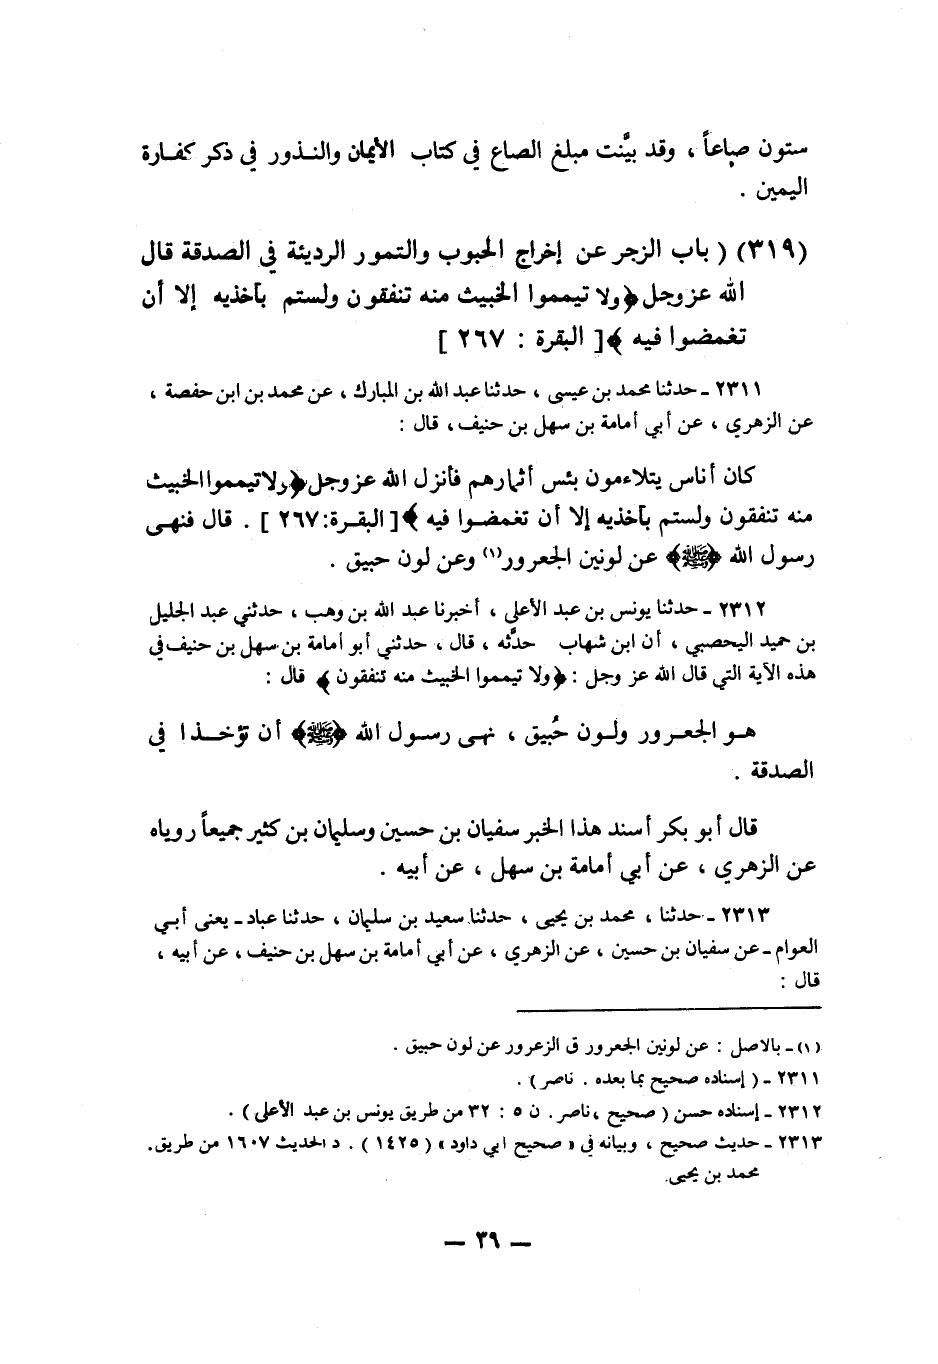 ستون صاعاً ، وقد بيَّنت مبلغ الصاع في كتاب الأيمان والنـذور في ذكر كفـارة
اليمين .
(٣١٩) ( باب الزجر عن إخراج الحبوب والتمور الرديئة في الصدقة قال
الله عز وجل ﴿ولا تيمموا الخبيث منه تنفقون ولستم بآخذيه إلا أن
تغمضوا فيه ﴾[ البقرة : ٢٦٧ ]
٢٣١١ ـ حدثنا محمد بن عيسى ، حدثنا عبد الله بن المبارك ، عن محمد بن ابن حفصة ،
عن الزهري ، عن أبي أمامة بن سهل بن حنيف ، قال :
كان أناس يتلاءمون بئس أثمارهم فأنزل الله عز وجل﴿ولا تيمموا الخبيث
منه تنفقون ولستم بآخذيه إلا أن تغمضـوا فيه ﴾[ البقـرة:٢٦٧ ] . قال فنهـى
رسول الله ﴿ﷺ﴾ عن لونين الجعرور(١) وعن لون حبيق .
٢٣١٢ ـ حدثنا يونس بن عبد الأعلى ، أخبرنا عبد الله بن وهب ، حدثني عبد الجليل
بن حميد اليحصبي ، أن ابن شهاب حدَّثه ، قال ، حدثني أبو أمامة بن سهل بن حنيف في
هذه الآية التي قال الله عز وجل : ﴿ولا تيمموا الخبيث منه تنفقون ﴾ قال :
هـو الجعـرور ولـون حُبيق ، نهـى رسـول الله ﴿ﷺ﴾ أن تؤخـذا في
الصدقة .
قال أبو بكر أسند هذا الخبر سفيان بن حسين وسليمان بن كثير جميعاً روياه
عن الزهري ، عن أبي أمامة بن سهل ، عن أبيه .
٢٣١٣ ـ حدثنا ، محمد بن يحيى ، حدثنا سعيد بن سليمان ، حدثنا عباد ـ يعنى أبـي
العوام ـ عن سفيان بن حسين ، عن الزهري ، عن أبي أمامة بن سهل بن حنيف ، عن أبيه ،
قال :
(١) ـ بالاصل : عن لونين الجعرور ق الزعرور عن لون حبيق .
٢٣١١ ـ ( إسناده صحيح بما بعده . ناصر ) .
٢٣١٢ ـ إسناده حسن ( صحيح ، ناصر . ن ٥ : ٣٢ من طريق يونس بن عبد الأعلى ) .
٢٣١٣ ـ حديث صحيح ، وبيانه في « صحيح ابي داود » ( ١٤٢٥ ) . د الحديث ١٦٠٧ من طريق.
محمد بن يحيى.
— ٣٩ —